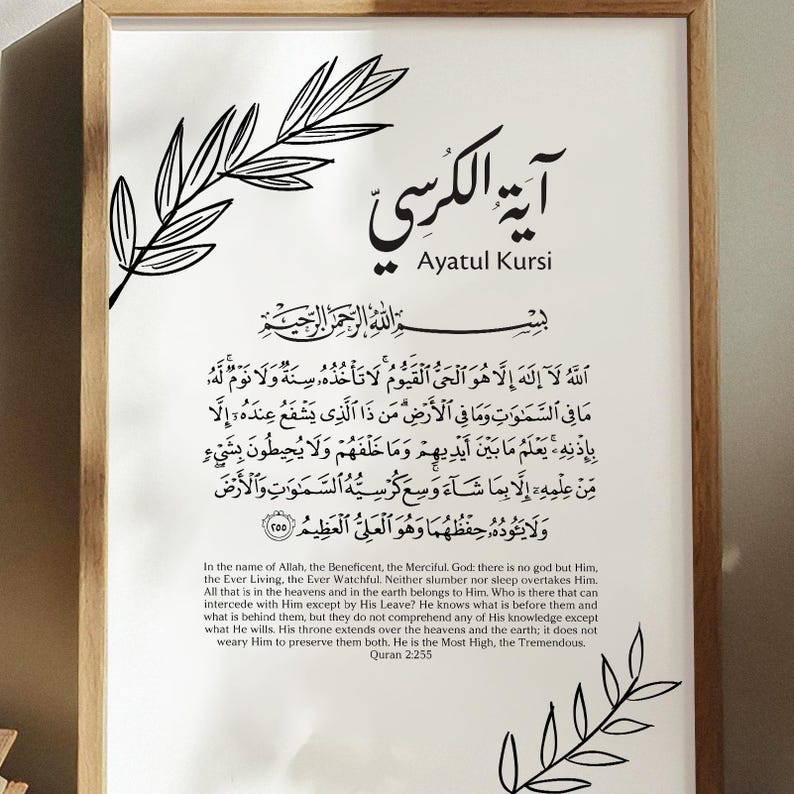 آيَةُ الكُرسِيّ
Ayatul Kursi
بِسْمِ اللَّهِ الرَّحْمَٰنِ الرَّحِيمِ
ٱللَّهُ لَآ إِلَٰهَ إِلَّا هُوَ ٱلْحَىُّ ٱلْقَيُّومُ ۚ لَا تَأْخُذُهُۥ سِنَةٌ وَلَا نَوْمٌ ۚ لَّهُۥ
مَا فِى ٱلسَّمَٰوَٰتِ وَمَا فِى ٱلْأَرْضِ ۗ مَن ذَا ٱلَّذِى يَشْفَعُ عِندَهُۥٓ إِلَّا
بِإِذْنِهِۦ ۚ يَعْلَمُ مَا بَيْنَ أَيْدِيهِمْ وَمَا خَلْفَهُمْ ۖ وَلَا يُحِيطُونَ بِشَىْءٍ
مِّنْ عِلْمِهِۦٓ إِلَّا بِمَا شَآءَ ۚ وَسِعَ كُرْسِيُّهُ ٱلسَّمَٰوَٰتِ وَٱلْأَرْضَ ۖ
وَلَا يَـُٔودُهُۥ حِفْظُهُمَا ۚ وَهُوَ ٱلْعَلِىُّ ٱلْعَظِيمُ ٢٥٥
In the name of Allah, the Beneficent, the Merciful. God: there is no god but Him,
the Ever Living, the Ever Watchful. Neither slumber nor sleep overtakes Him.
All that is in the heavens and in the earth belongs to Him. Who is there that can
intercede with Him except by His Leave? He knows what is before them and
what is behind them, but they do not comprehend any of His knowledge except
what He wills. His throne extends over the heavens and the earth; it does not
weary Him to preserve them both. He is the Most High, the Tremendous.
Quran 2:255